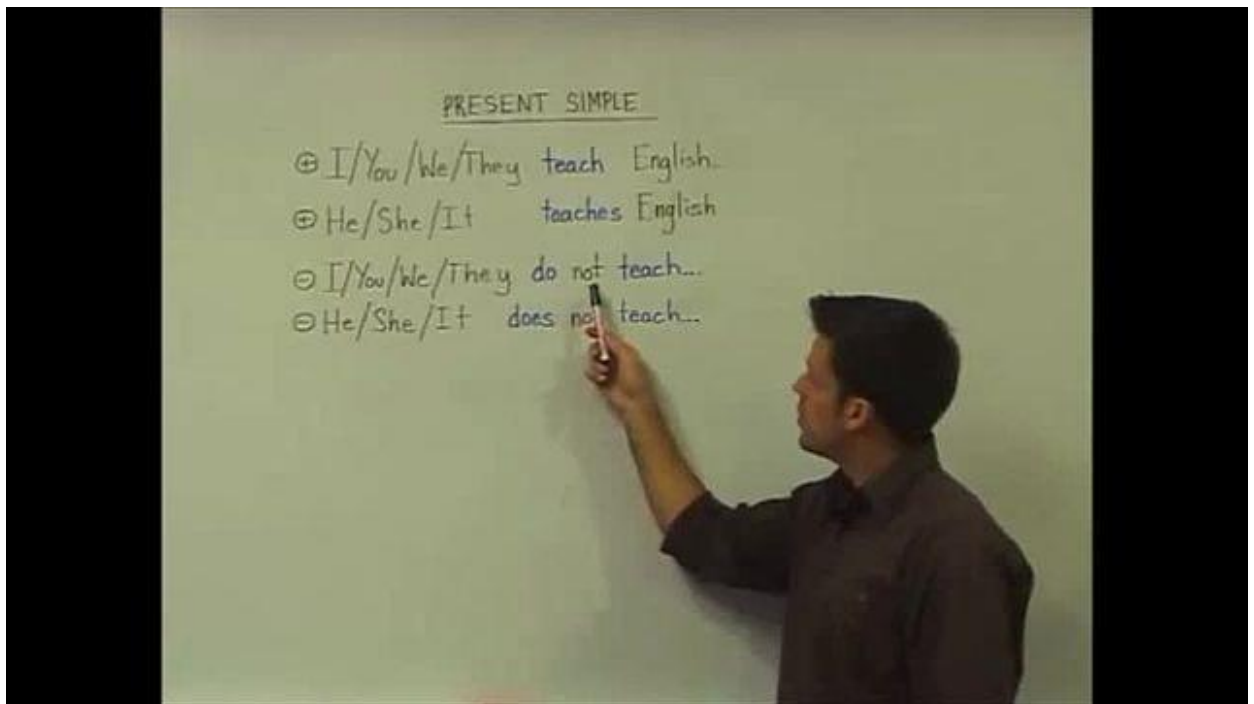 PRESENT SIMPLE
⊕ I/You/We/They teach English.
⊕ He/She/It teaches English
⊖ I/You/We/They do not teach...
⊖ He/She/It does not teach...